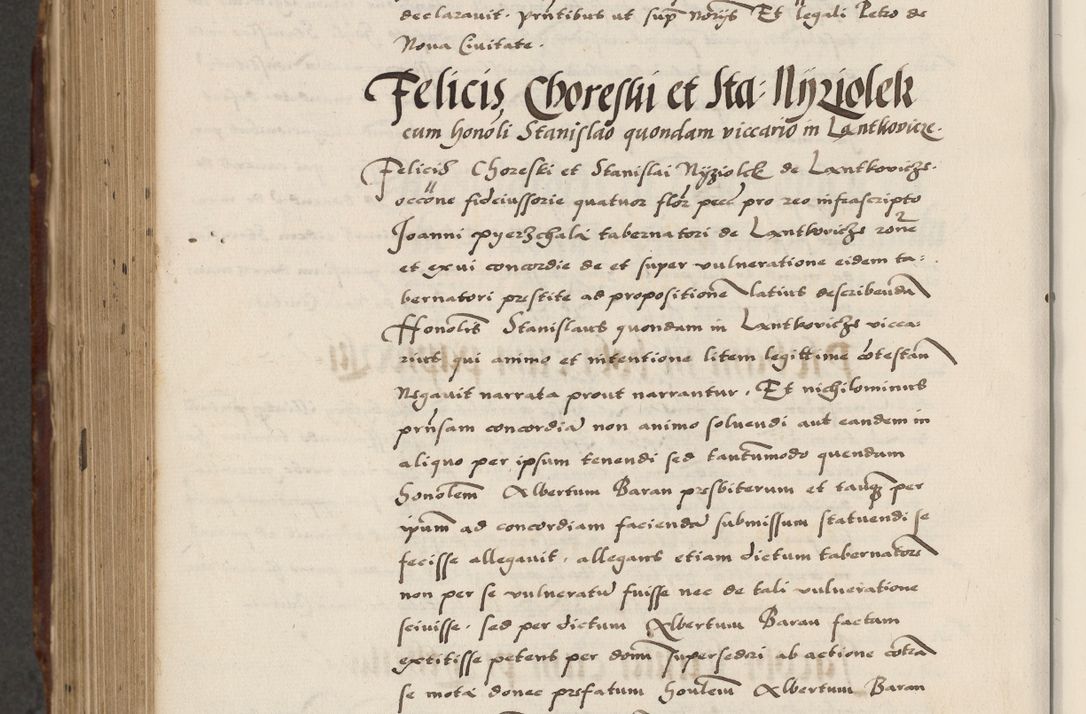 declaravit. prntibus ut sup norijs Et legali Petro de
Nova Civitate.
Felicis Choreski et Sta: Nyziolek
cum honoli Stanislao quondam viccario in Lantkovicze.
Felicis Choreski et Stanislai Nyziolek de Lantkovicze.
occone fideiussorie quatuor flor pecc pro reo infrascripto
Joanni pyerzchala tabernatori de Lantkovicze rone
et ex vi concordie de et super vulneratione eidem ta:
bernatori prestite ad propositione latius describenda
Honolis Stanislaus quondam in Lantkovicze vicca:
rius qui animo et intentione litem legittime cotestan
Negavit narrata prout narrantur. Et nichilominus
prnsam concordia non animo solvendi aut eandem in
aliquo per ipsum tenendi sed tantummodo quendam
honolem Albertum Baran presbiterum et tanq per
ipum ad concordiam facienda submissum statuendi se
fecisse allegavit. allegans etiam dictum tabernatore
non per se vulneratu fuisse nec de tali vulneratione
scivisse. sed per dictum Albertum Baran factam
extitisse petens per donu supersederi ab actione cotra
se mota donec prefatum honlem Albertum Baran